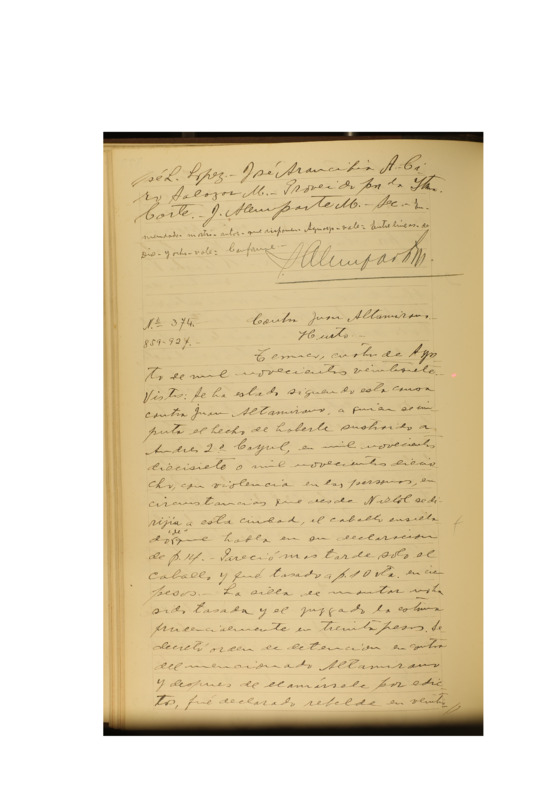 sé L. Lopez - José Arancibia A - Ci
ro Salazar M. - Proveido por la Iltma.
Corte. - J. Alemparte M. - Sec - r.
mendado - vale
J Alemparte M.
N.º 374. Contra Juan Altamirano.
859-927. Hurto -
Temuco, cuatro de Agos
to de mil novecientos veintisiete.
Visto: Se ha estado siguiendo esta causa
contra Juan Altamirano, a quien se im
puta el hecho de haberle sustraido a
Andres 2º Cayul, en mil novecientos
diecisiete o mil novecientos diecio
cho, con violencia en las personas, en
circunstancias que desde Nielol se di
rijia a esta ciudad, el caballo ensilla
do de que habla en su declaracion
de f. 14. - Pareció mas tarde solo el
caballo y fué tasado a f. 10 vta. en cien
pesos. - La silla de montar no ha
sido tasada y el juzgado la estima
prudencialmente en treinta pesos. Se
decretó orden de detencion en contra
del mencionado Altamirano
y despues de llamársele por edic
tos, fué declarado rebelde en